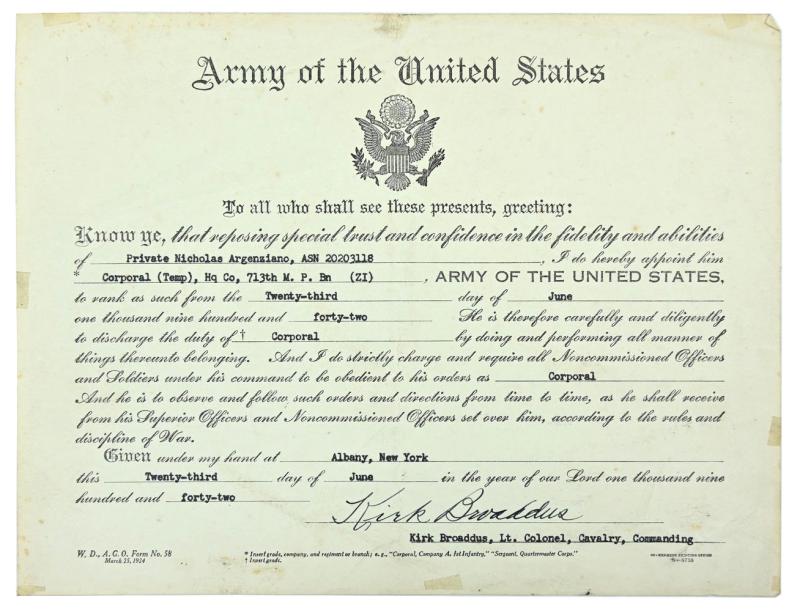 Army of the United States
To all who shall see these presents, greeting:
Know ye, that reposing special trust and confidence in the fidelity and abilities
of Private Nicholas Argenziano, ASN 20203118, I do hereby appoint him
* Corporal (Temp), Hq Co, 713th M. P. Bn (ZI), ARMY OF THE UNITED STATES,
to rank as such from the Twenty-third day of June
one thousand nine hundred and forty-two He is therefore carefully and diligently
to discharge the duty of † Corporal by doing and performing all manner of
things thereunto belonging. And I do strictly charge and require all Noncommissioned Officers
and Soldiers under his command to be obedient to his orders as Corporal
And he is to observe and follow such orders and directions from time to time, as he shall receive
from his Superior Officers and Noncommissioned Officers set over him, according to the rules and
discipline of War.
Given under my hand at Albany, New York
this Twenty-third day of June in the year of our Lord one thousand nine
hundred and forty-two
Kirk Broaddus
Kirk Broaddus, Lt. Colonel, Cavalry, Commanding
W. D., A. G. O. Form No. 58
March 25, 1924
* Insert grade, company, and regiment or branch; e. g., "Corporal, Company A, 1st Infantry," "Sergeant, Quartermaster Corps."
† Insert grade.